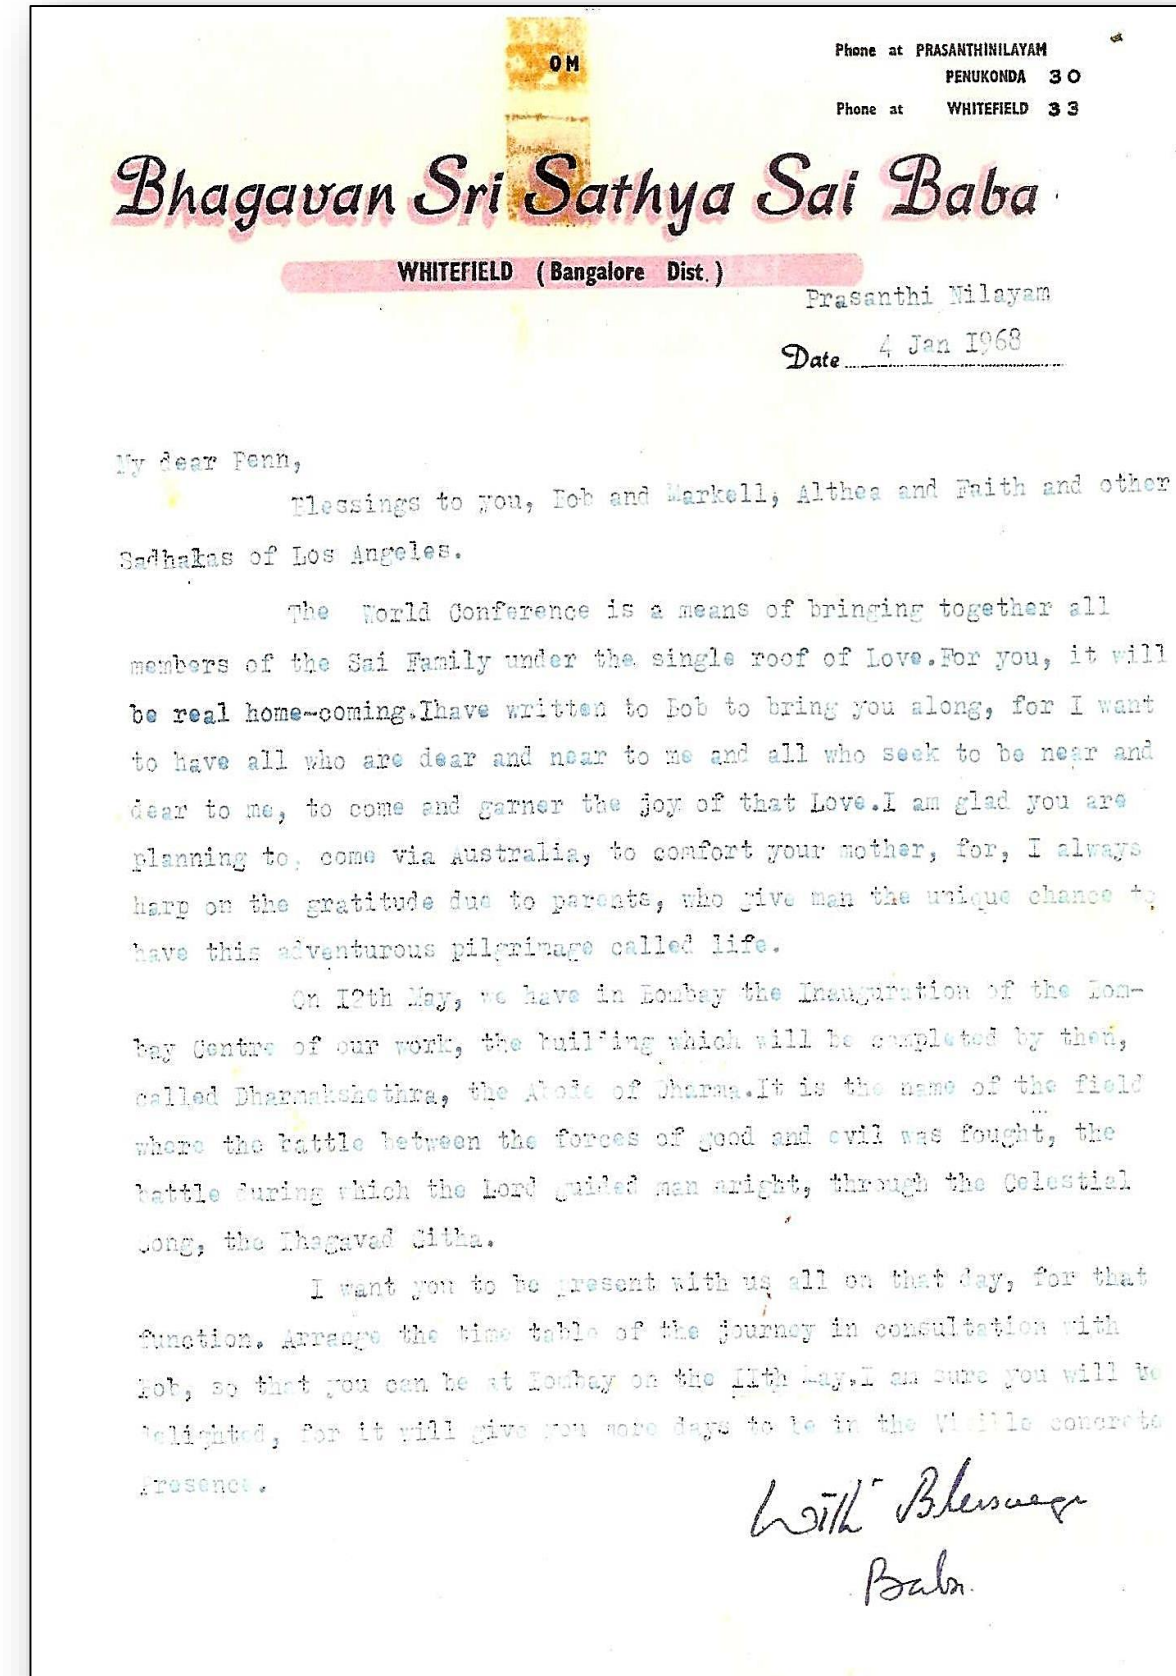 OM
Phone at PRASANTHINILAYAM
PENUKONDA 30
Phone at WHITEFIELD 33
Bhagavan Sri Sathya Sai Baba
WHITEFIELD (Bangalore Dist.)
Prasanthi Nilayam
Date 4 Jan I968
My dear Penn,
Blessings to you, Bob and Markell, Althea and Faith and other
Sadhakas of Los Angeles.
The World Conference is a means of bringing together all
members of the Sai Family under the single roof of Love.For you, it will
be real home-coming.Ihave written to Bob to bring you along, for I want
to have all who are dear and near to me and all who seek to be near and
dear to me, to come and garner the joy of that Love.I am glad you are
planning to come via Australia, to comfort your mother, for, I always
harp on the gratitude due to parents, who give man the unique chance to
have this adventurous pilgrimage called life.
On I2th May, we have in Bombay the Inauguration of the Bom-
bay Centre of our work, the building which will be completed by then,
called Dharmakshethra, the Abode of Dharma.It is the name of the field
where the battle between the forces of good and evil was fought, the
battle during which the Lord guided man aright, through the Celestial
Song, the Bhagavad Githa.
I want you to be present with us all on that day, for that
function. Arrange the time table of the journey in consultation with
Bob, so that you can be at Bombay on the IIth May.I am sure you will be
delighted, for it will give you more days to be in the Visible concrete
Presence.
With Blessings
Baba